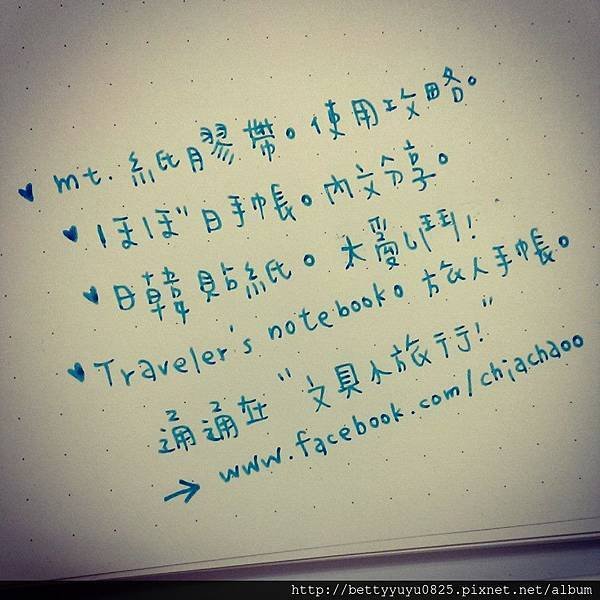 ♥ mt. 紙膠帶。使用攻略。
♥ ほぼ日手帳。內文分享。
♥ 日韓貼紙。大愛鬥!
♥ Traveler's notebook。旅人手帳。
通通在 "文具小旅行!"
→ www.facebook.com/chiachaoo
http://bettyyuyu0825.pixnet.net/album